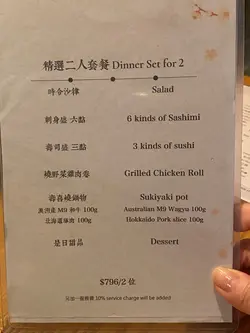 精選二人套餐 Dinner Set for 2
時令沙律 Salad
刺身盛 六點 6 kinds of Sashimi
壽司盛 三點 3 kinds of sushi
燒野菜雞肉卷 Grilled Chicken Roll
壽喜燒鍋物 Sukiyaki pot
澳洲産 M9 和牛 100g Australian M9 Wagyu 100g
北海道豚肉 100g Hokkaido Pork slice 100g
是日甜品 Dessert
$796/2 位
另加一服務費 10% service charge will be added